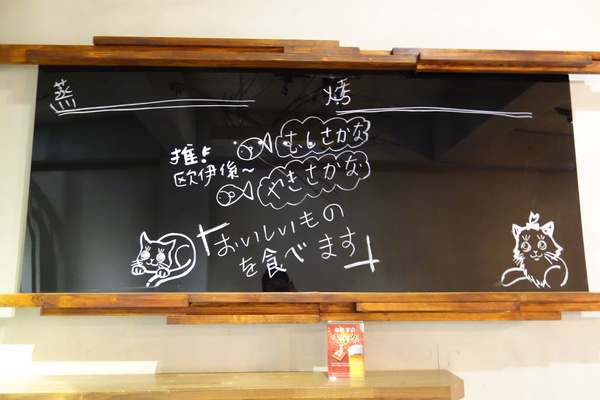 蒸
烤
推!
欧伊係~
むしさかな
やきさかな
「おいしいもの
を食べます」